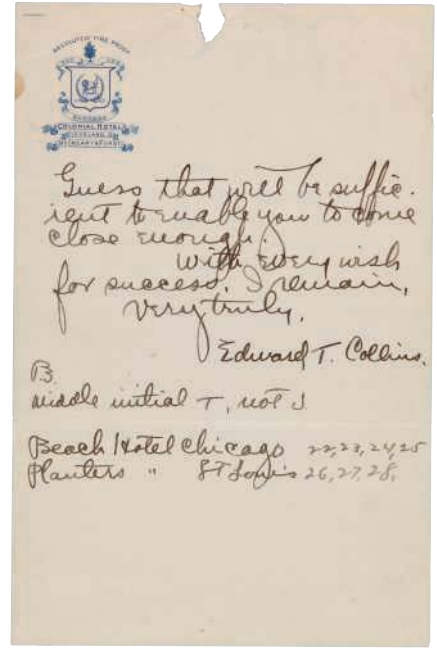 ABSOLUTELY FIRE PROOF
COLONIAL HOTEL
CLEVELAND, O.
Guess that will be suffic-
ient to enable you to come
close enough.
With every wish
for success, I remain,
Very truly,
Edward T. Collins.
B
Middle initial T, not J.
Beach Hotel Chicago 22, 23, 24, 25
Planters " St Louis 26, 27, 28,